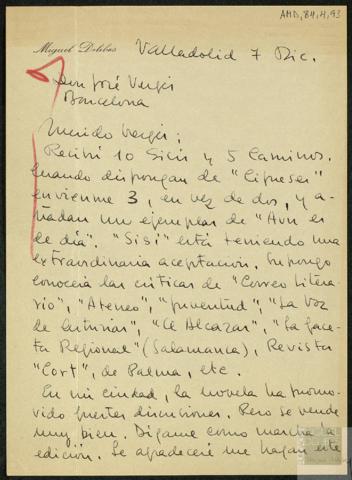 AMD, 84, 4, 93
Miguel Delibes
Valladolid 7 Dic.
Don José Vergés
Barcelona
Querido Vergés:
Recibí 10 Sisís y 5 Caminos.
Cuando dispongan de "Cipreses"
envíenme 3, en vez de dos, y a-
ñadan un ejemplar de "Aun es
de día". "Sisí" está teniendo una
extraordinaria aceptación. Supongo
conocerá las críticas de "Correo Litera-
rio", "Ateneo", "Juventud", "La Voz
de Asturias", "El Alcázar", "La Gace-
ta Regional" (Salamanca), Revista
"Cort", de Palma, etc.
En mi ciudad, la novela ha promo-
vido fuertes discusiones. Pero se vende
muy bien. Dígame como marcha la
edición. Le agradeceré me hagan este